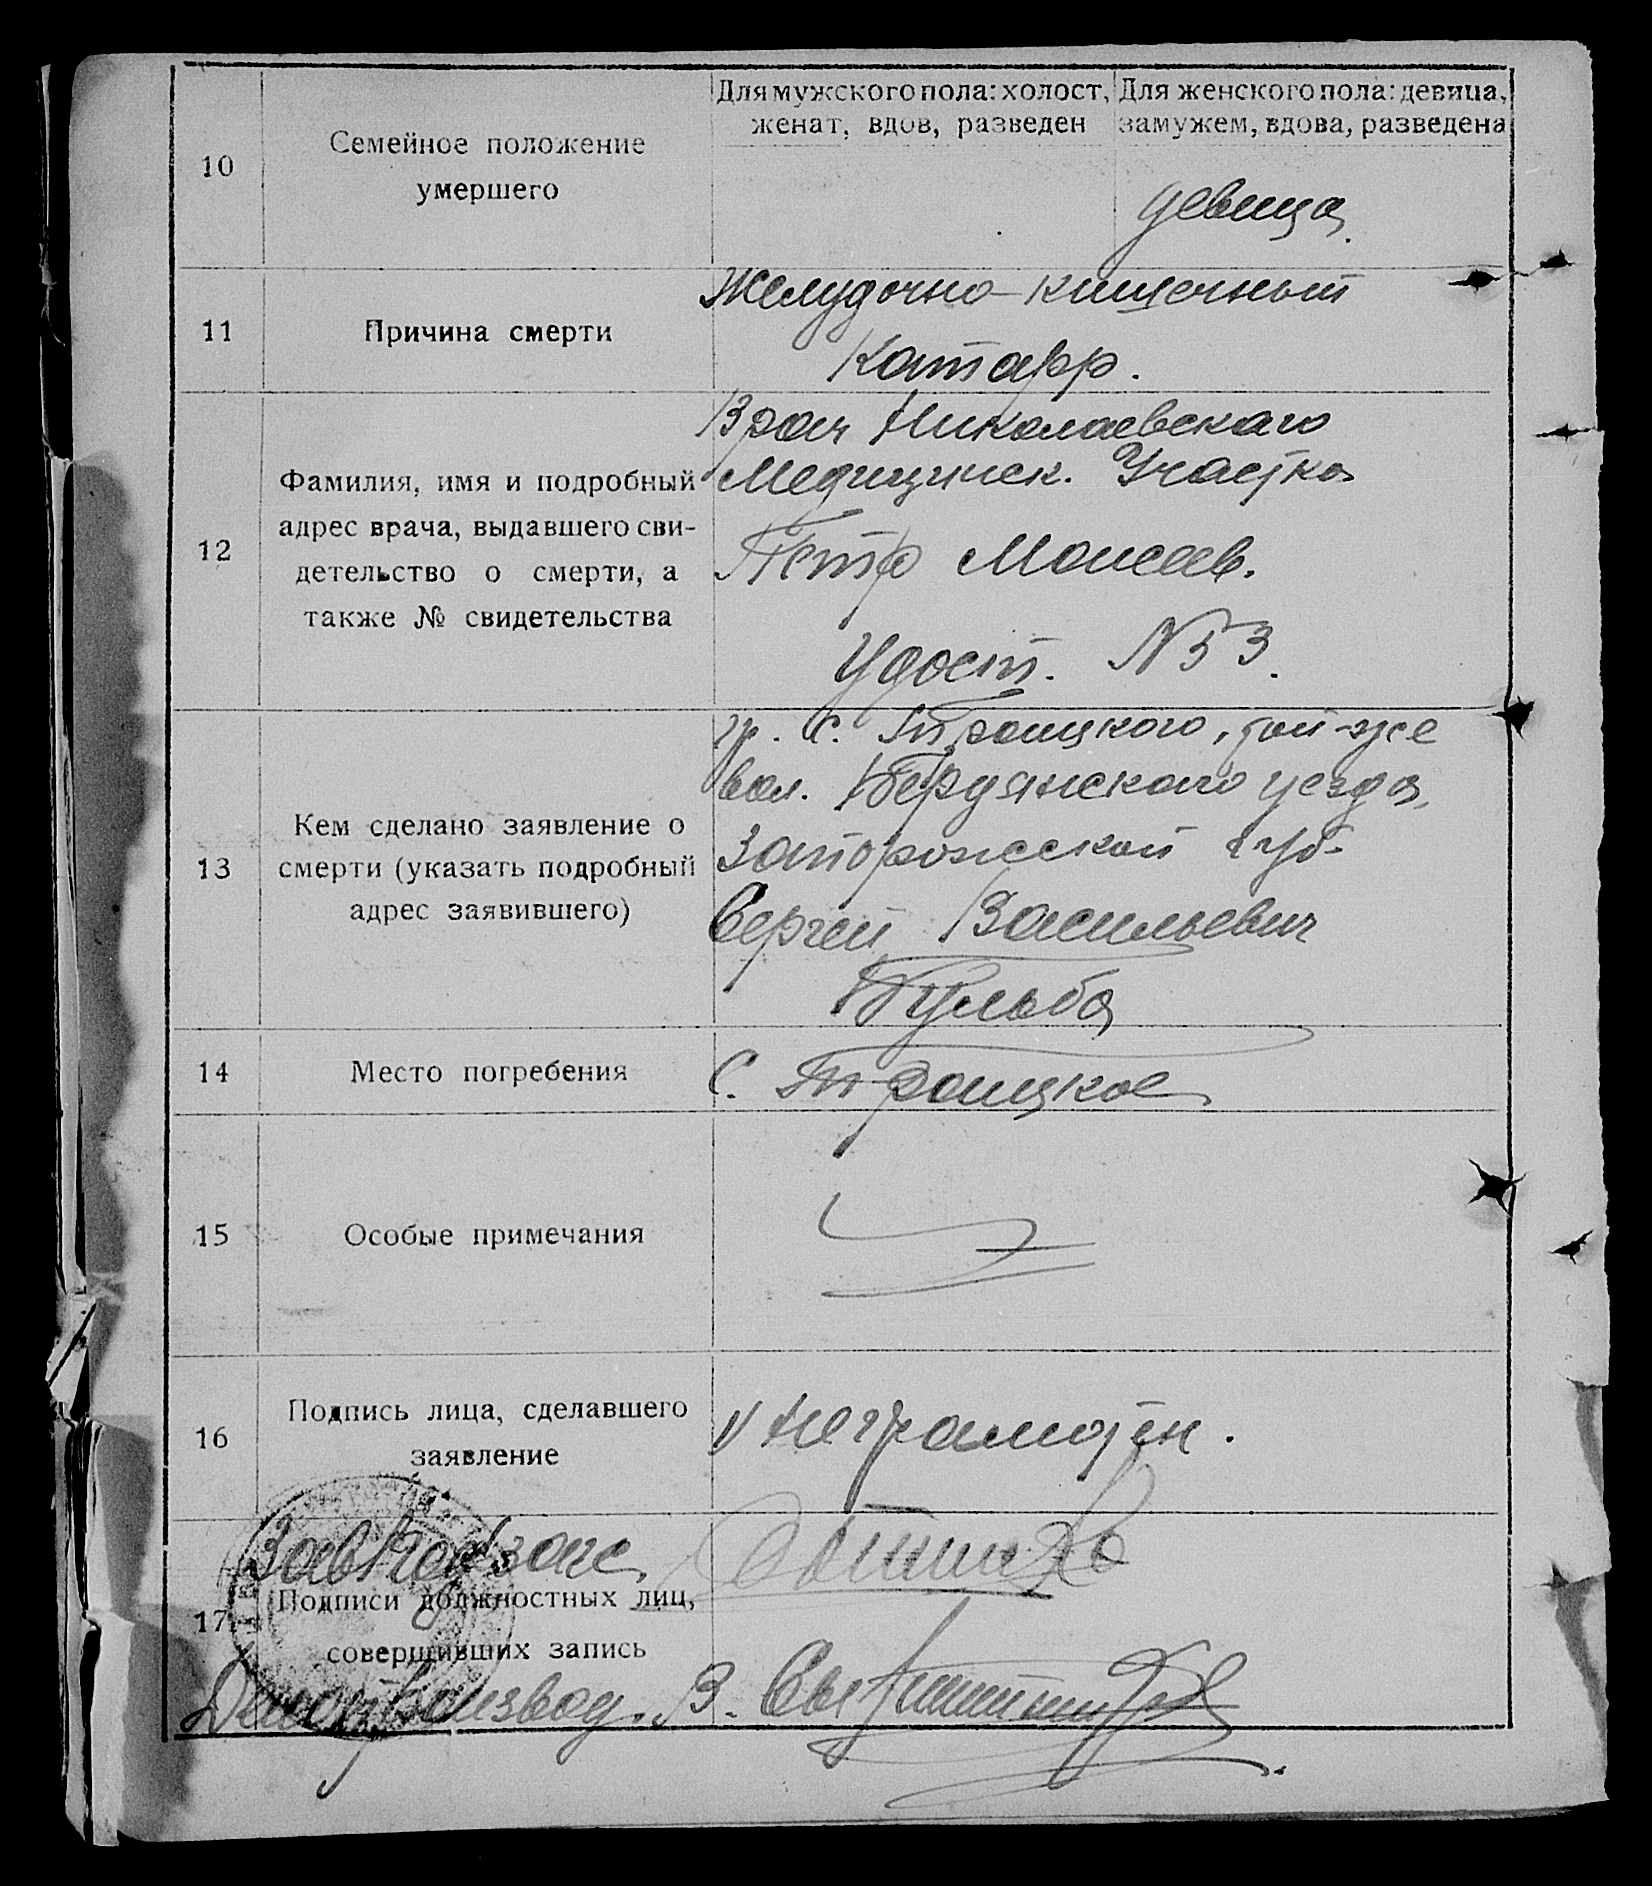 10
Семейное положение
умершего
Для мужского пола: холост,
женат, вдов, разведен
Для женского пола: девица,
замужем, вдова, разведена
девица.
11
Причина смерти
Желудочно-кишечный
Катарр.
12
Фамилия, имя и подробный
адрес врача, выдавшего сви-
детельство о смерти, а
также № свидетельства
Врач Николаевскаго
Медицинск. Участка
Петр Моисеев.
Удост. N 53.
13
Кем сделано заявление о
смерти (указать подробный
адрес заявившего)
гр. С. Троицкого, той-же
вол. Бердянскаго уезда,
Запорожской губ.
Сергей Васильевич
Бульба
14
Место погребения
С. Троицкое
15
Особые примечания
16
Подпись лица, сделавшего
заявление
Неграмотен.
17
Подписи должностных лиц,
совершивших запись
Делопроизвод. В.